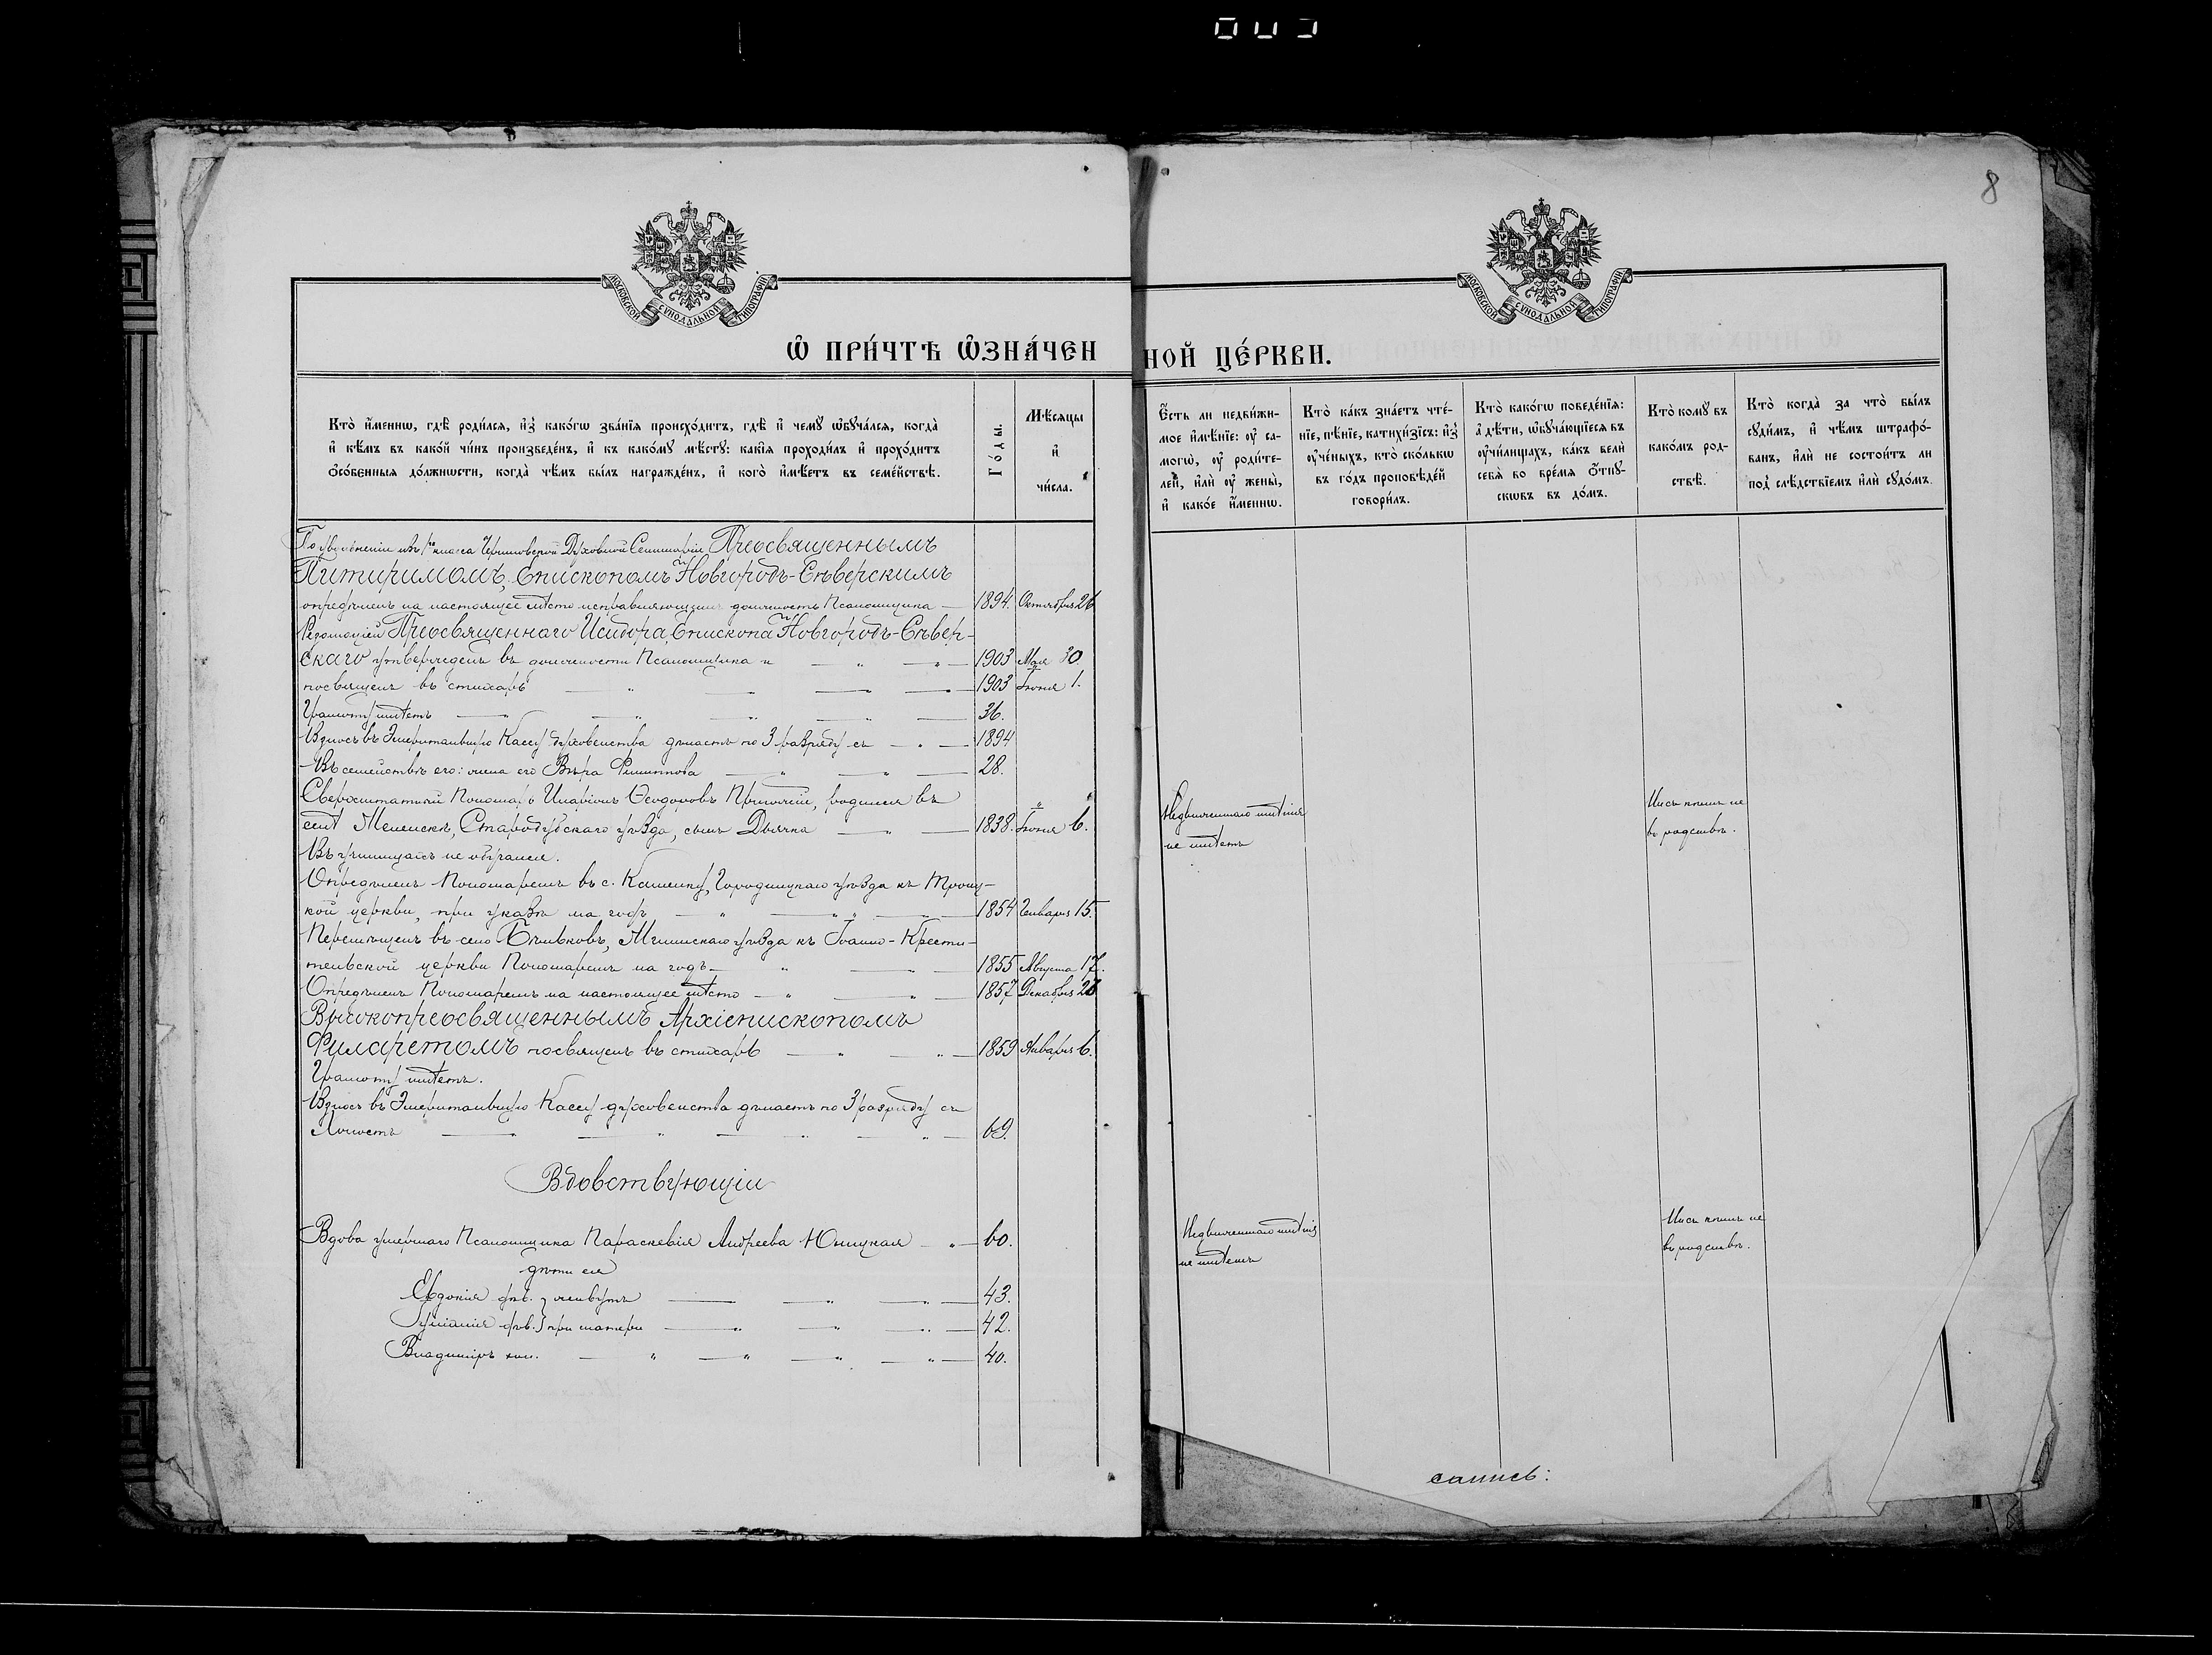 8
МОСКОВСКОЙ СѴНОДАЛЬНОЙ ТИПОГРАФІИ
МОСКОВСКОЙ СѴНОДАЛЬНОЙ ТИПОГРАФІИ
Ѡ ПРИ́ЧТѢ Ѡ҆ЗНА́ЧЕН НОЙ ЦЕ́РКВИ.
Кто̀ и҆́менно, гдѣ̀ роди́лся, и҆з̾ како́гѡ зва́нїя происхо́дитъ, гдѣ̀ и҆ чемꙋ̀ ѡ҆бꙋча́лся, когда̀
и҆ кѣ́мъ въ како́й чи́нъ произведе́нъ, и҆ къ како́мꙋ мѣ́стꙋ: какі̑я проходи́лъ и҆ прохо́дитъ
ѻ҆со́бенныя до́лжности, когда̀ чѣ́мъ бы́лъ награжде́нъ, и҆ кого̀ и҆мѣ́етъ въ семе́йствѣ.
Го́ды.
Мѣ́сяцы
и҆
чи́сла.
Є҆́сть ли недви́жи-
мое и҆мѣ́нїе: ᲂу҆ са-
могѡ̀, ᲂу҆ роди́те-
лей, и҆лѝ ᲂу҆ жены̀,
и҆ како́е и҆́менно.
Кто̀ ка́къ зна́етъ чте́-
нїе, пѣ́нїе, катихи́зїсъ: и҆з̾
ᲂу҆че́ныхъ, кто̀ ско́лькѡ
въ го́дъ проповѣ́дей
говори́лъ.
Кто̀ како́гѡ поведе́нїя:
а҆ дѣ́ти, ѡ҆бꙋча́ющїеся въ
ᲂу҆чи́лищахъ, ка́къ велѝ
себя̀ во вре́мя ѿпꙋ-
сковъ въ до́мъ.
Кто̀ комꙋ̀ въ
како́мъ род-
ствѣ̀.
Кто̀ когда̀ за что̀ бы́лъ
сꙋди́мъ, и҆ чѣ́мъ штрафо́-
ванъ, и҆лѝ не состои́тъ ли
под̾ слѣ́дствїемъ и҆лѝ сꙋдо́мъ.
По увольненіи изъ 1го класса Черниговской Духовной Семинаріи Преосвященнымъ
Питиримомъ, Епископомъ Новгородъ-Сѣверскимъ
опредѣленъ на настоящее мѣсто исправляющимъ должность Псаломщика — 1894. Октября 26
Резолюціей Преосвященнаго Исидора, Епископа Новгородъ-Сѣвер-
скаго утвержденъ въ должности Псаломщика и — „ — „ — 1903 Мая 30
посвященъ въ стихарь — „ — — „ — 1903 Іюня 1.
Грамоту имѣетъ — „ — „ — „ — „ — 36.
Взносъ въ Эмеритальную Кассу духовенства дѣлаетъ по 3 разряду съ — „ — 1894
Въ семействѣ его: жена его Вѣра Филиппова — „ — „ — 28.
Сверхштатный Пономарь Иларіонъ Ѳеодоровъ Пригожій, родился въ
селѣ Меленскѣ, Стародубскаго уѣзда, сынъ Дьячка — „ — 1838. Іюня 6.
Недвижимаго имѣнія
не имѣетъ
Ни съ кѣмъ не
въ родствѣ.
Въ училищахъ не обучался.
Опредѣленъ Пономаремъ въ с. Каменку, Городницкаго уѣзда къ Троиц-
кой церкви, при указѣ на годъ — „ — „ — 1854 Января 15.
Перемѣщенъ въ село Бѣлвковъ, Мглинскаго уѣзда къ Іоанно-Крести-
тельской церкви Пономаремъ на годъ — „ — 1855 Августа 17.
Опредѣленъ Пономаремъ на настоящее мѣсто — „ — „ — 1857 Декабря 28
Высокопреосвященнымъ Архіепископомъ
Филаретомъ посвященъ въ стихарь — „ — „ — 1859 Января 6.
Грамоту имѣетъ.
Взносъ въ Эмеритальную Кассу духовенства дѣлаетъ по 3 разряду съ
— „ — „ — „ — „ — 69.
Вдовствующіи
Вдова умершаго Псаломщика Параскевія Андреева Юницкая — „ — 60.
Недвижимаго имѣнія
не имѣетъ
Ни съ кѣмъ не
въ родствѣ.
дѣти ея
Евдокія дѣв. } живутъ — — „ — „ — 43.
Іуліанія дѣв. } при матери — „ — „ — „ — 42.
Владиміръ хол. — „ — „ — „ — „ — 40.